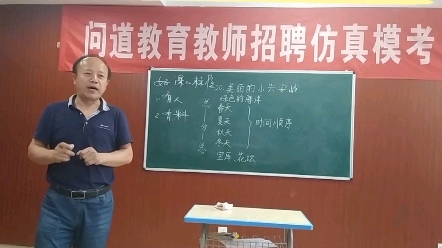 问道教育教师招聘仿真模考
20.美丽的小兴安岭
1.有人
2.有料
总
分
总
绿色的海洋
春天
夏天
秋天
冬天
宝库、花坛
时间顺序